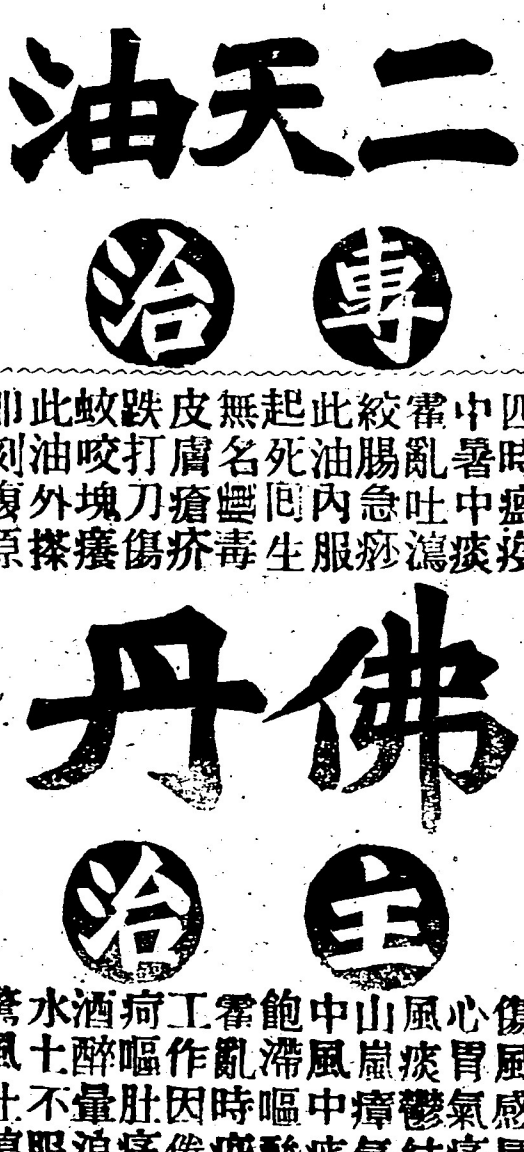 二天油
專治
四時瘟疫
中暑中痰
霍亂吐瀉
絞腸急痧
此油內服
起死回生
無名腫毒
皮膚瘡疥
跌打刀傷
蚊咬塊癢
此油外搽
即刻復原
佛丹
主治
傷風感冒
心胃氣痛
風痰鬱結
山嵐瘴氣
中風中痰
飽滯嘔酸
霍亂時
工作因倦
疴嘔肚痛
酒醉暈浪
水土不服